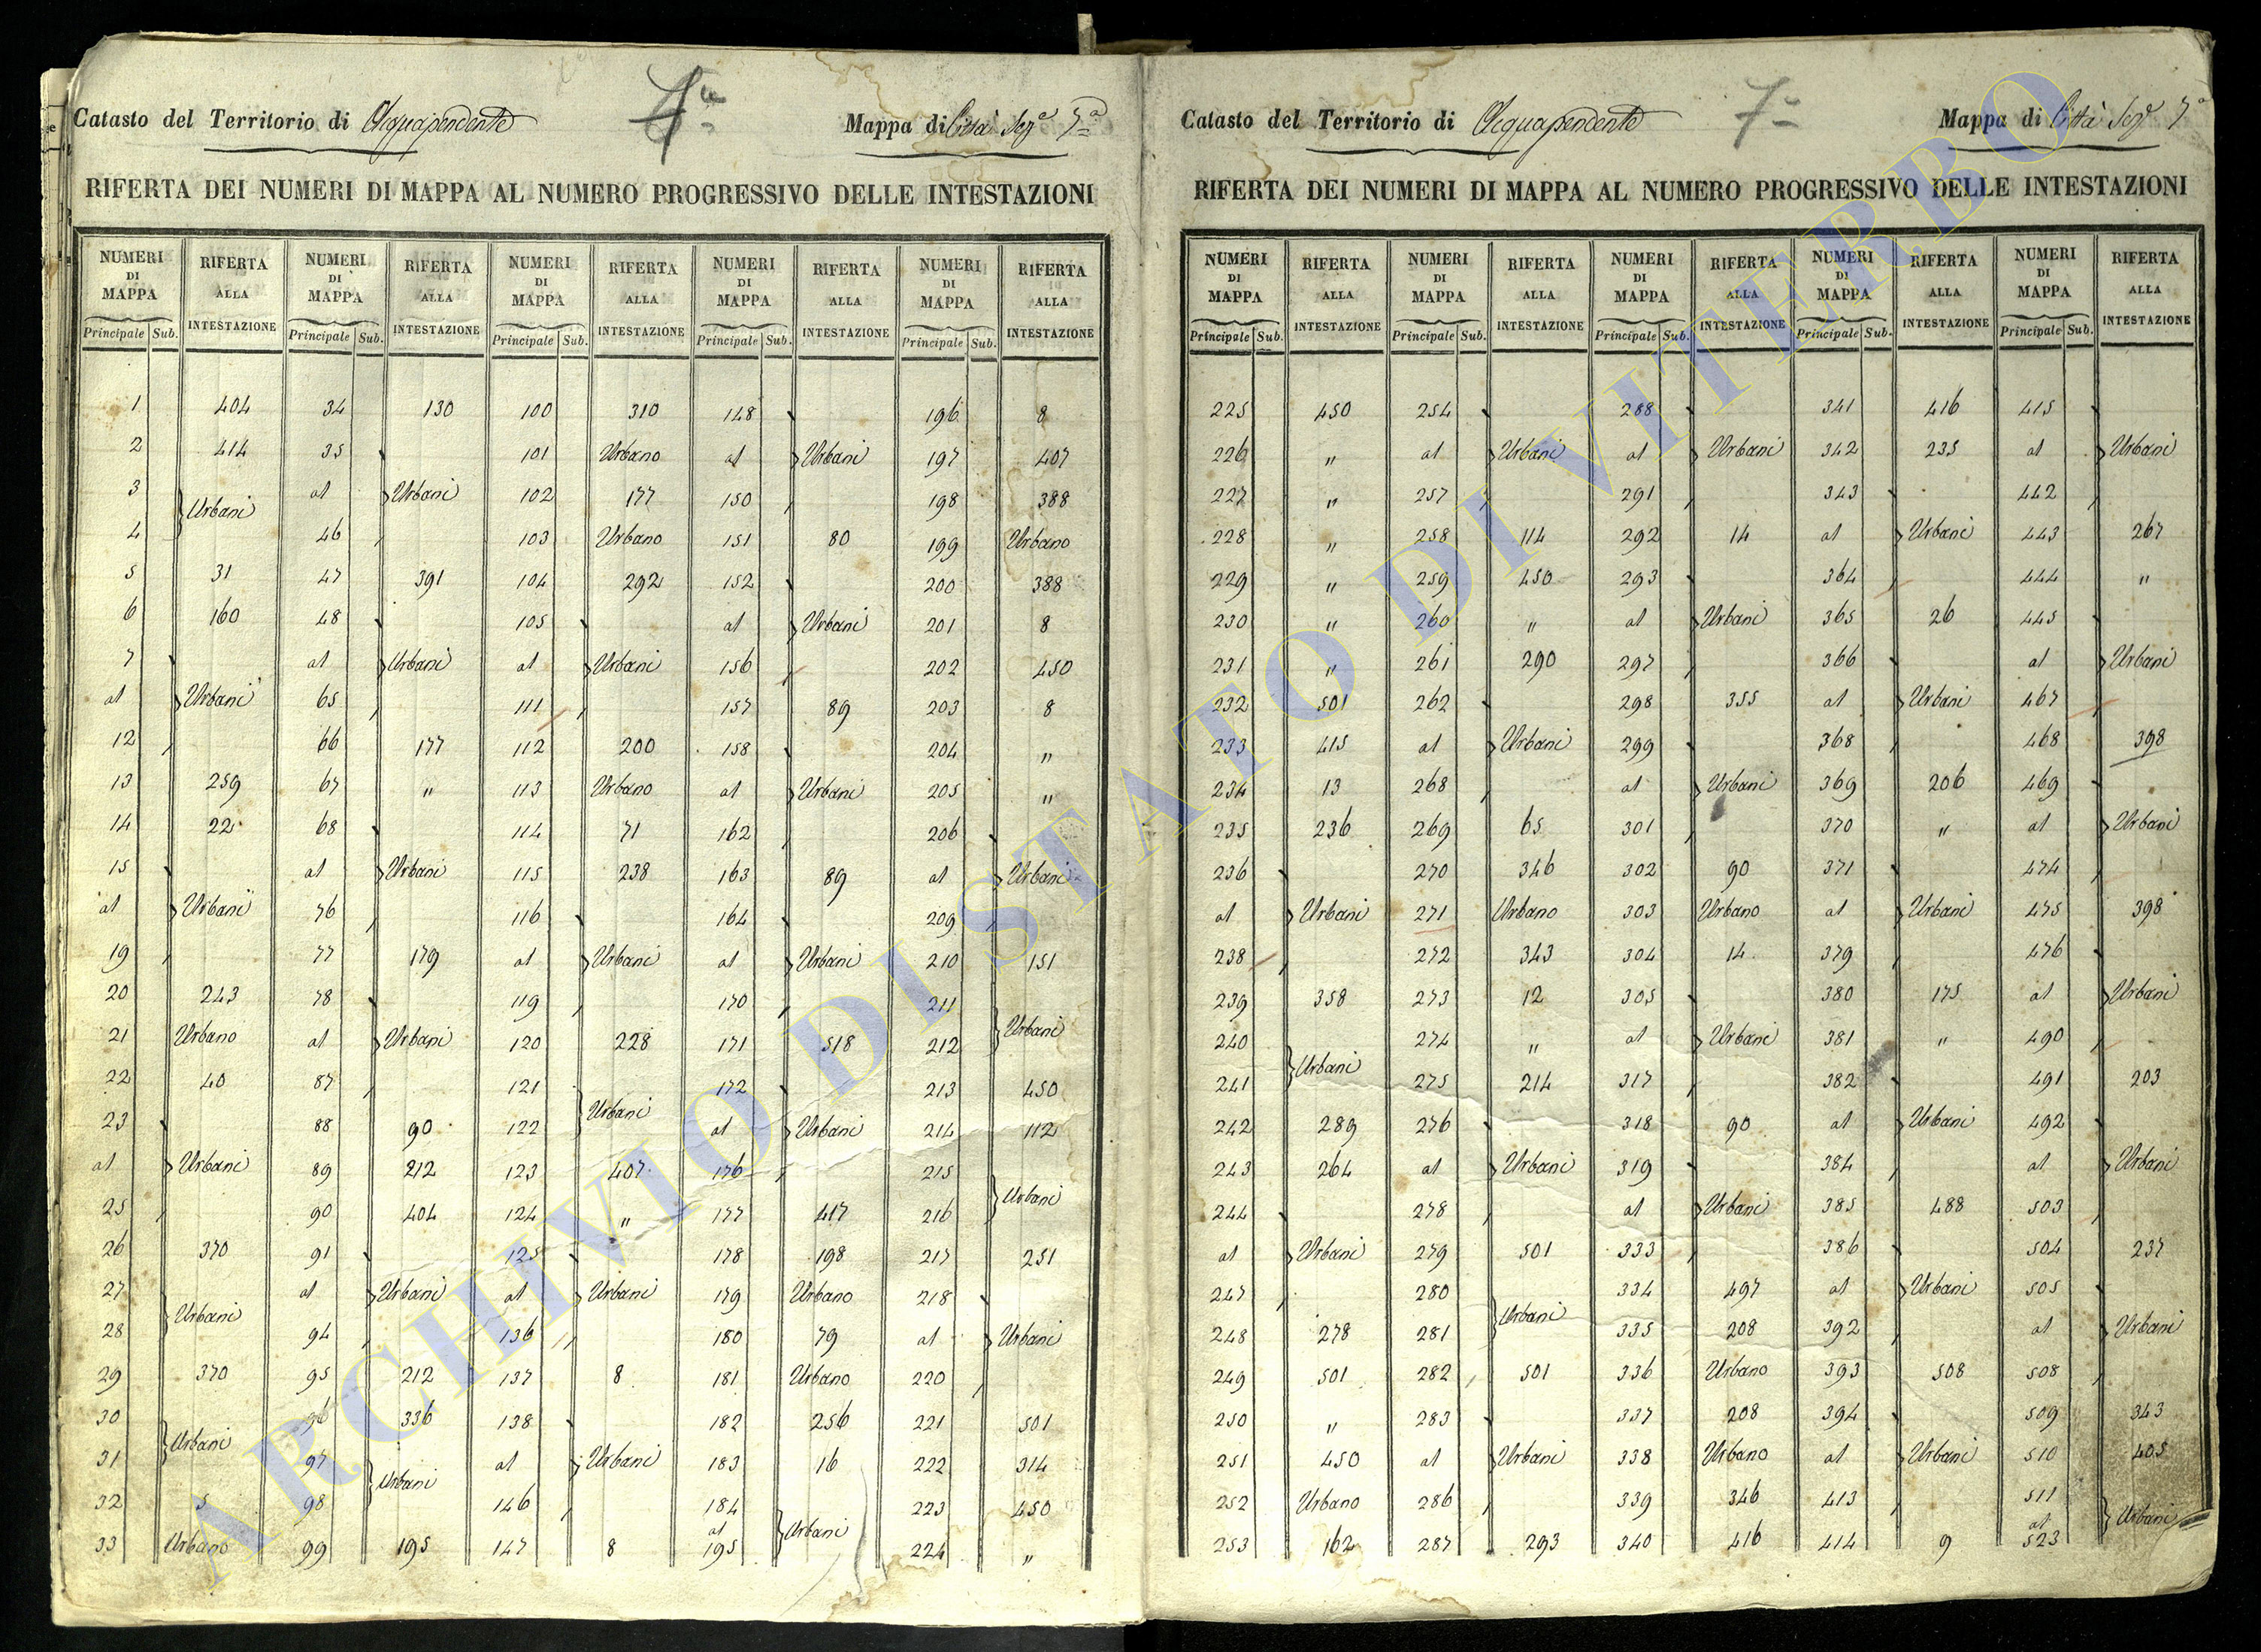 Catasto del Territorio di Acquapendente 7ª Mappa di Città Sezª 7ª
RIFERTA DEI NUMERI DI MAPPA AL NUMERO PROGRESSIVO DELLE INTESTAZIONI
NUMERI DI MAPPA RIFERTA ALLA INTESTAZIONE NUMERI DI MAPPA RIFERTA ALLA INTESTAZIONE NUMERI DI MAPPA RIFERTA ALLA INTESTAZIONE NUMERI DI MAPPA RIFERTA ALLA INTESTAZIONE NUMERI DI MAPPA RIFERTA ALLA INTESTAZIONE
Principale Sub. Principale Sub. Principale Sub. Principale Sub. Principale Sub.
1 404 34 130 100 310 148 196 8
2 414 35 101 Urbano al Urbani 197 407
3 Urbani al Urbani 102 177 150 198 388
4 46 103 Urbano 151 80 199 Urbano
5 31 47 391 104 292 152 200 388
6 160 48 105 al Urbani 201 8
7 al Urbani al Urbani 156 202 450
al Urbani 65 111 157 89 203 8
12 66 177 112 200 158 204 "
13 259 67 " 113 Urbano al Urbani 205 "
14 22 68 114 71 162 206
15 al Urbani 115 238 163 89 al Urbani
al Urbani 76 116 164 209
19 77 179 al Urbani al Urbani 210 151
20 243 78 119 170 211 Urbani
21 Urbano al Urbani 120 228 171 518 212
22 40 87 121 Urbani 172 213 450
23 88 90 122 al Urbani 214 112
al Urbani 89 212 123 407 176 215 Urbani
25 90 404 124 " 177 417 216
26 370 91 125 178 198 217 251
27 Urbani al Urbani al Urbani 179 Urbano 218
28 94 136 180 79 al Urbani
29 370 95 212 137 8 181 Urbano 220
30 Urbani 96 336 138 182 256 221 501
31 97 Urbani al Urbani 183 16 222 314
32 5 98 146 184 al Urbani 223 450
33 Urbano 99 195 147 8 195 224 "
Catasto del Territorio di Acquapendente 7ª Mappa di Città Sezª 7ª
RIFERTA DEI NUMERI DI MAPPA AL NUMERO PROGRESSIVO DELLE INTESTAZIONI
NUMERI DI MAPPA RIFERTA ALLA INTESTAZIONE NUMERI DI MAPPA RIFERTA ALLA INTESTAZIONE NUMERI DI MAPPA RIFERTA ALLA INTESTAZIONE NUMERI DI MAPPA RIFERTA ALLA INTESTAZIONE NUMERI DI MAPPA RIFERTA ALLA INTESTAZIONE
Principale Sub. Principale Sub. Principale Sub. Principale Sub. Principale Sub.
225 450 254 288 341 416 415
226 " al Urbani al Urbani 342 235 al Urbani
227 " 257 291 343 442
228 " 258 114 292 14 al Urbani 443 267
229 " 259 450 293 364 444 "
230 " 260 " al Urbani 365 26 445
231 " 261 290 297 366 al Urbani
232 501 262 298 355 al Urbani 467
233 415 al Urbani 299 368 468 398
234 13 268 al Urbani 369 206 469
235 236 269 65 301 370 " al Urbani
236 270 346 302 90 371 474
al Urbani 271 Urbano 303 Urbano al Urbani 475 398
238 272 343 304 14 379 476
239 358 273 12 305 380 175 al Urbani
240 Urbani 274 " al Urbani 381 " 490
241 275 214 317 382 491 203
242 289 276 318 90 al Urbani 492
243 264 al Urbani 319 384 al Urbani
244 278 al Urbani 385 488 503
al Urbani 279 501 333 386 504 237
247 280 Urbani 334 497 al Urbani 505
248 278 281 335 208 392 al Urbani
249 501 282 501 336 Urbano 393 508 508
250 " 283 337 208 394 509 343
251 450 al Urbani 338 Urbano al Urbani 510 405
252 Urbano 286 339 346 413 511 al Urbani
253 162 287 293 340 416 414 9 523
ARCHIVIO DI STATO DI VITERBO